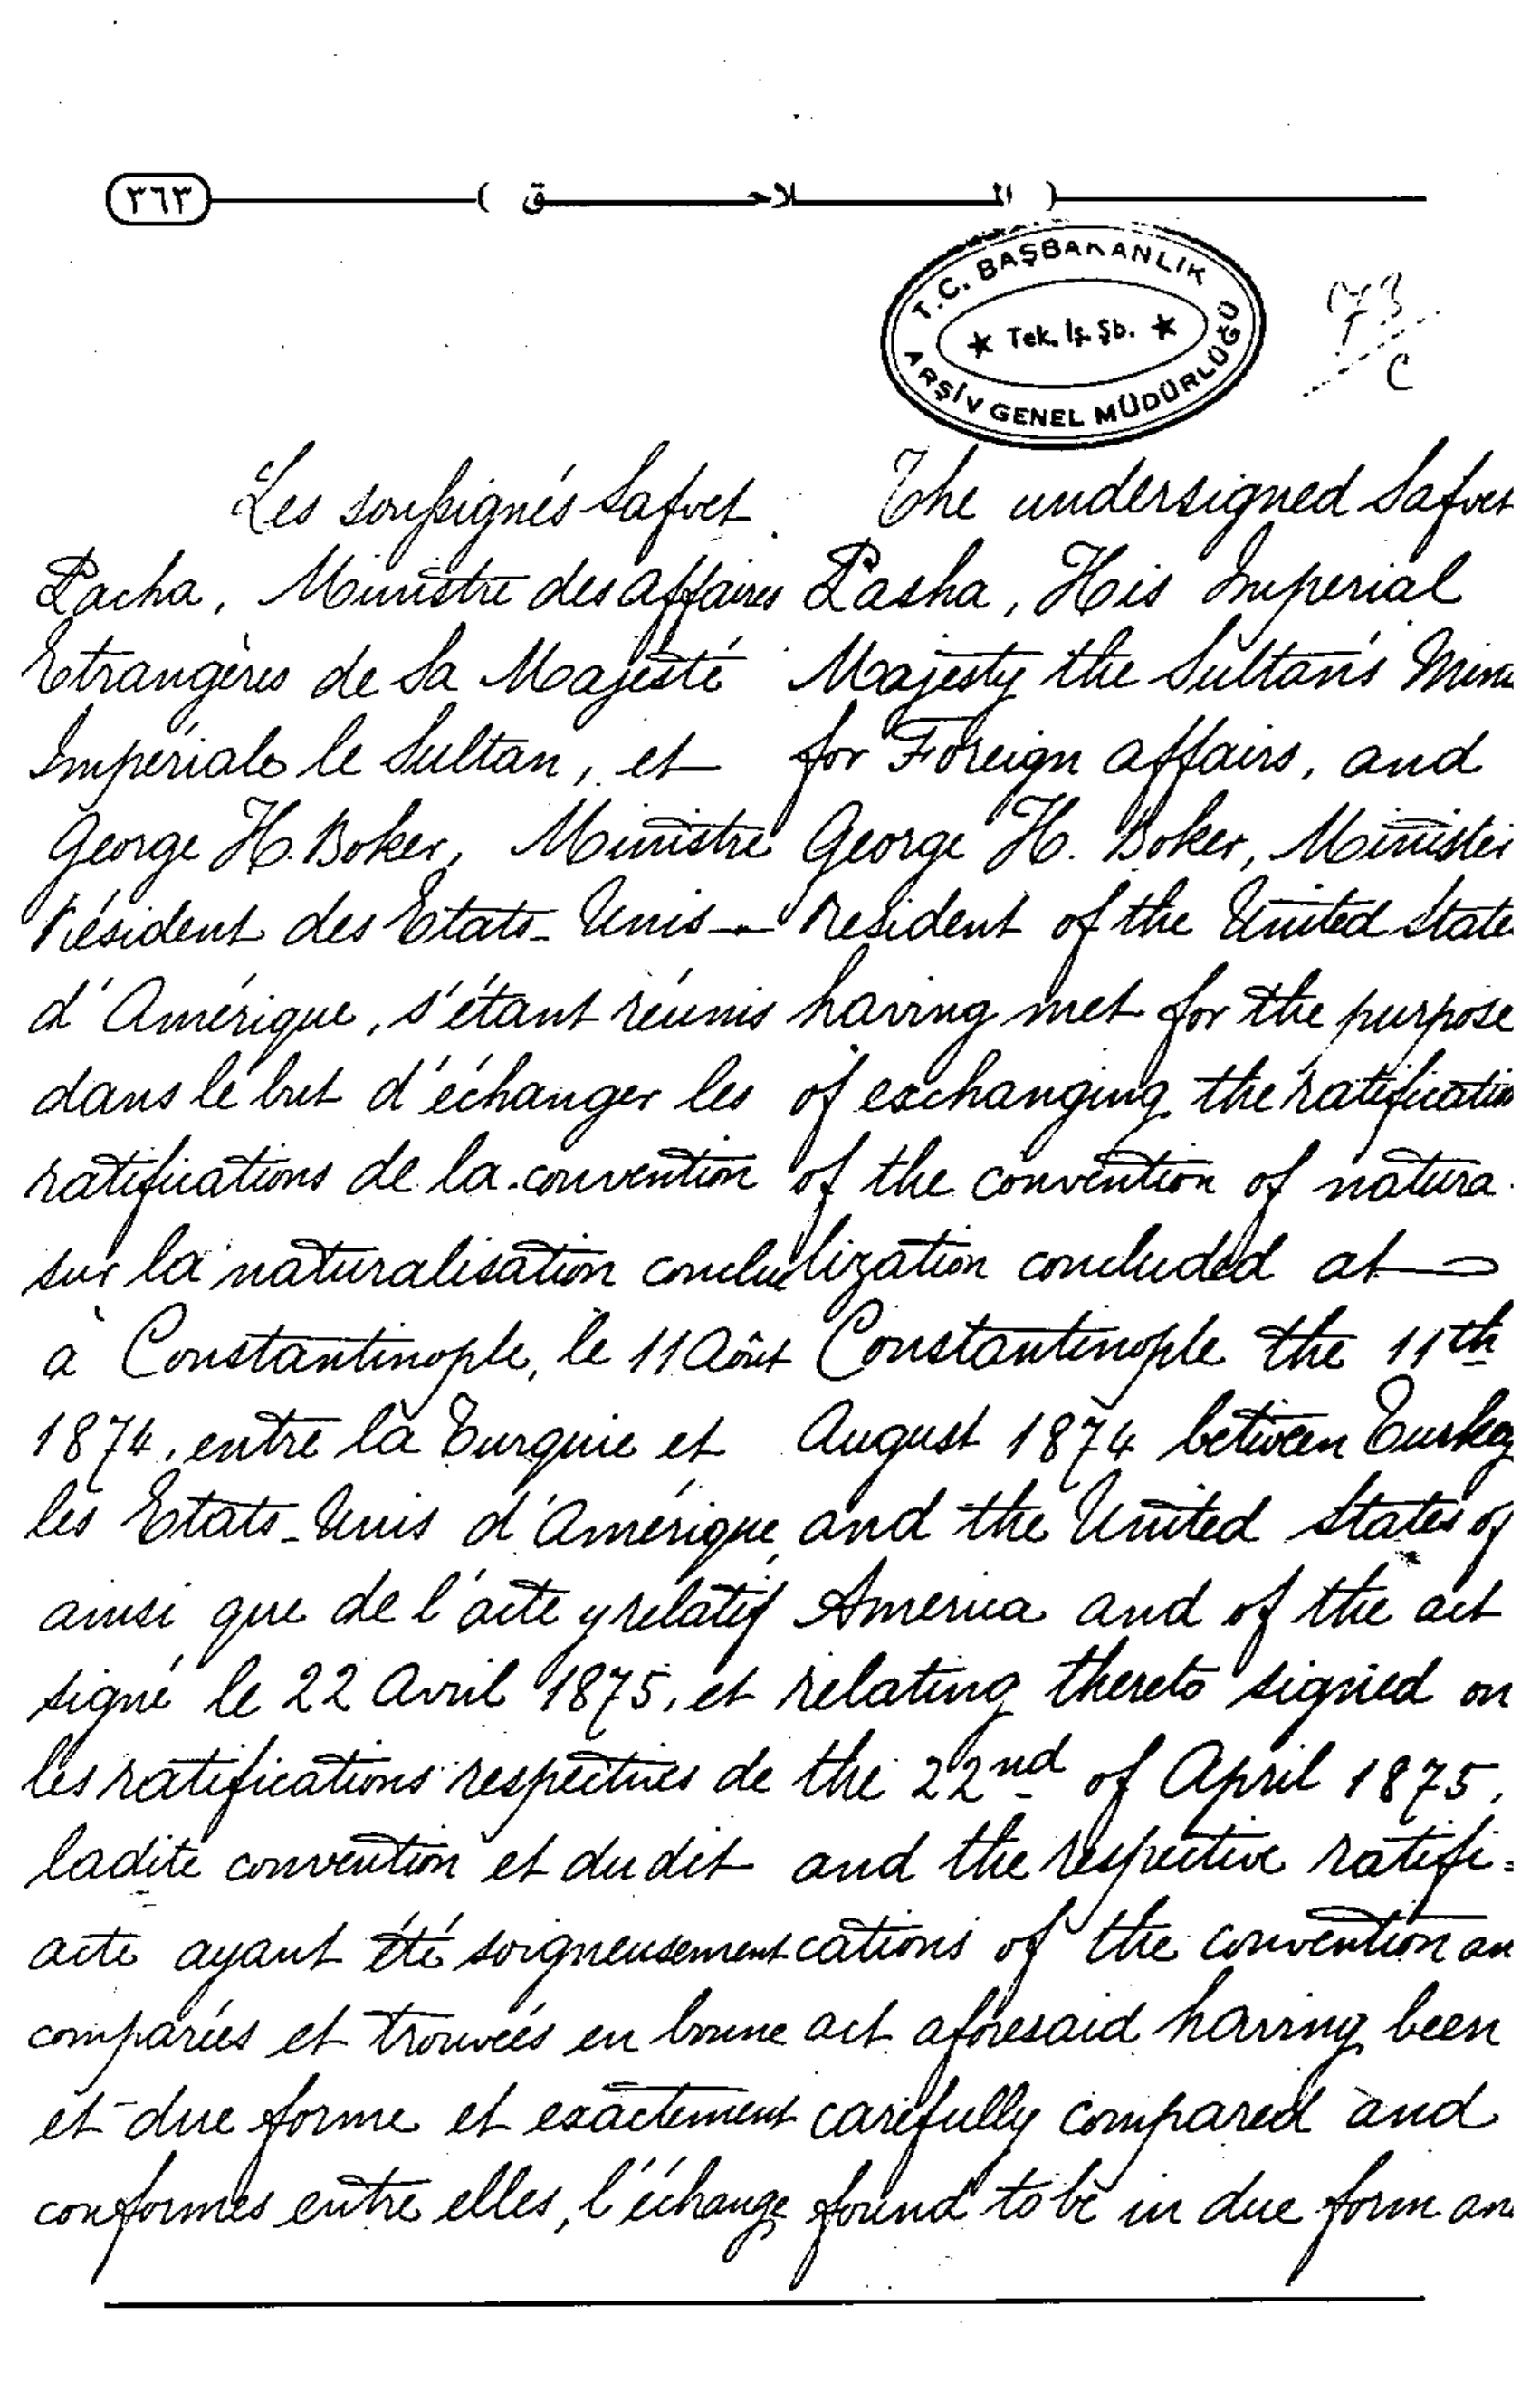 ٣٦٣
( الملاحق )
T.C. BAŞBAKANLIK
* Tek. İş. Şb. *
ARŞİV GENEL MÜDÜRLÜĞÜ
C
Les soussignés Safvet
Pacha, Ministre des affaires
Etrangères de Sa Majesté
Impériale le Sultan, et
George H. Boker, Ministre
Résident des Etats-Unis
d'Amérique, s'étant réunis
dans le but d'échanger les
ratifications de la convention
sur la naturalisation conclue
à Constantinople, le 11 Août
1874, entre la Turquie et
les Etats-Unis d'Amérique,
ainsi que de l'acte y relatif
signé le 22 Avril 1875, et
les ratifications respectives de
ladite convention et du dit
acte ayant été soigneusement
comparées et trouvées en bonne
et due forme et exactement
conformes entre elles, l'échange
The undersigned Safvet
Pasha, His Imperial
Majesty the Sultan's Minis
for Foreign affairs, and
George H. Boker, Minister
Resident of the United State
having met for the purpose
of exchanging the ratification
of the convention of natura-
lization concluded at
Constantinople the 11th
August 1874 between Turkey
and the United States of
America and of the act
relating thereto signed on
the 22nd of April 1875,
and the respective ratifi=
cations of the convention an
act aforesaid having been
carefully compared and
found to be in due form an